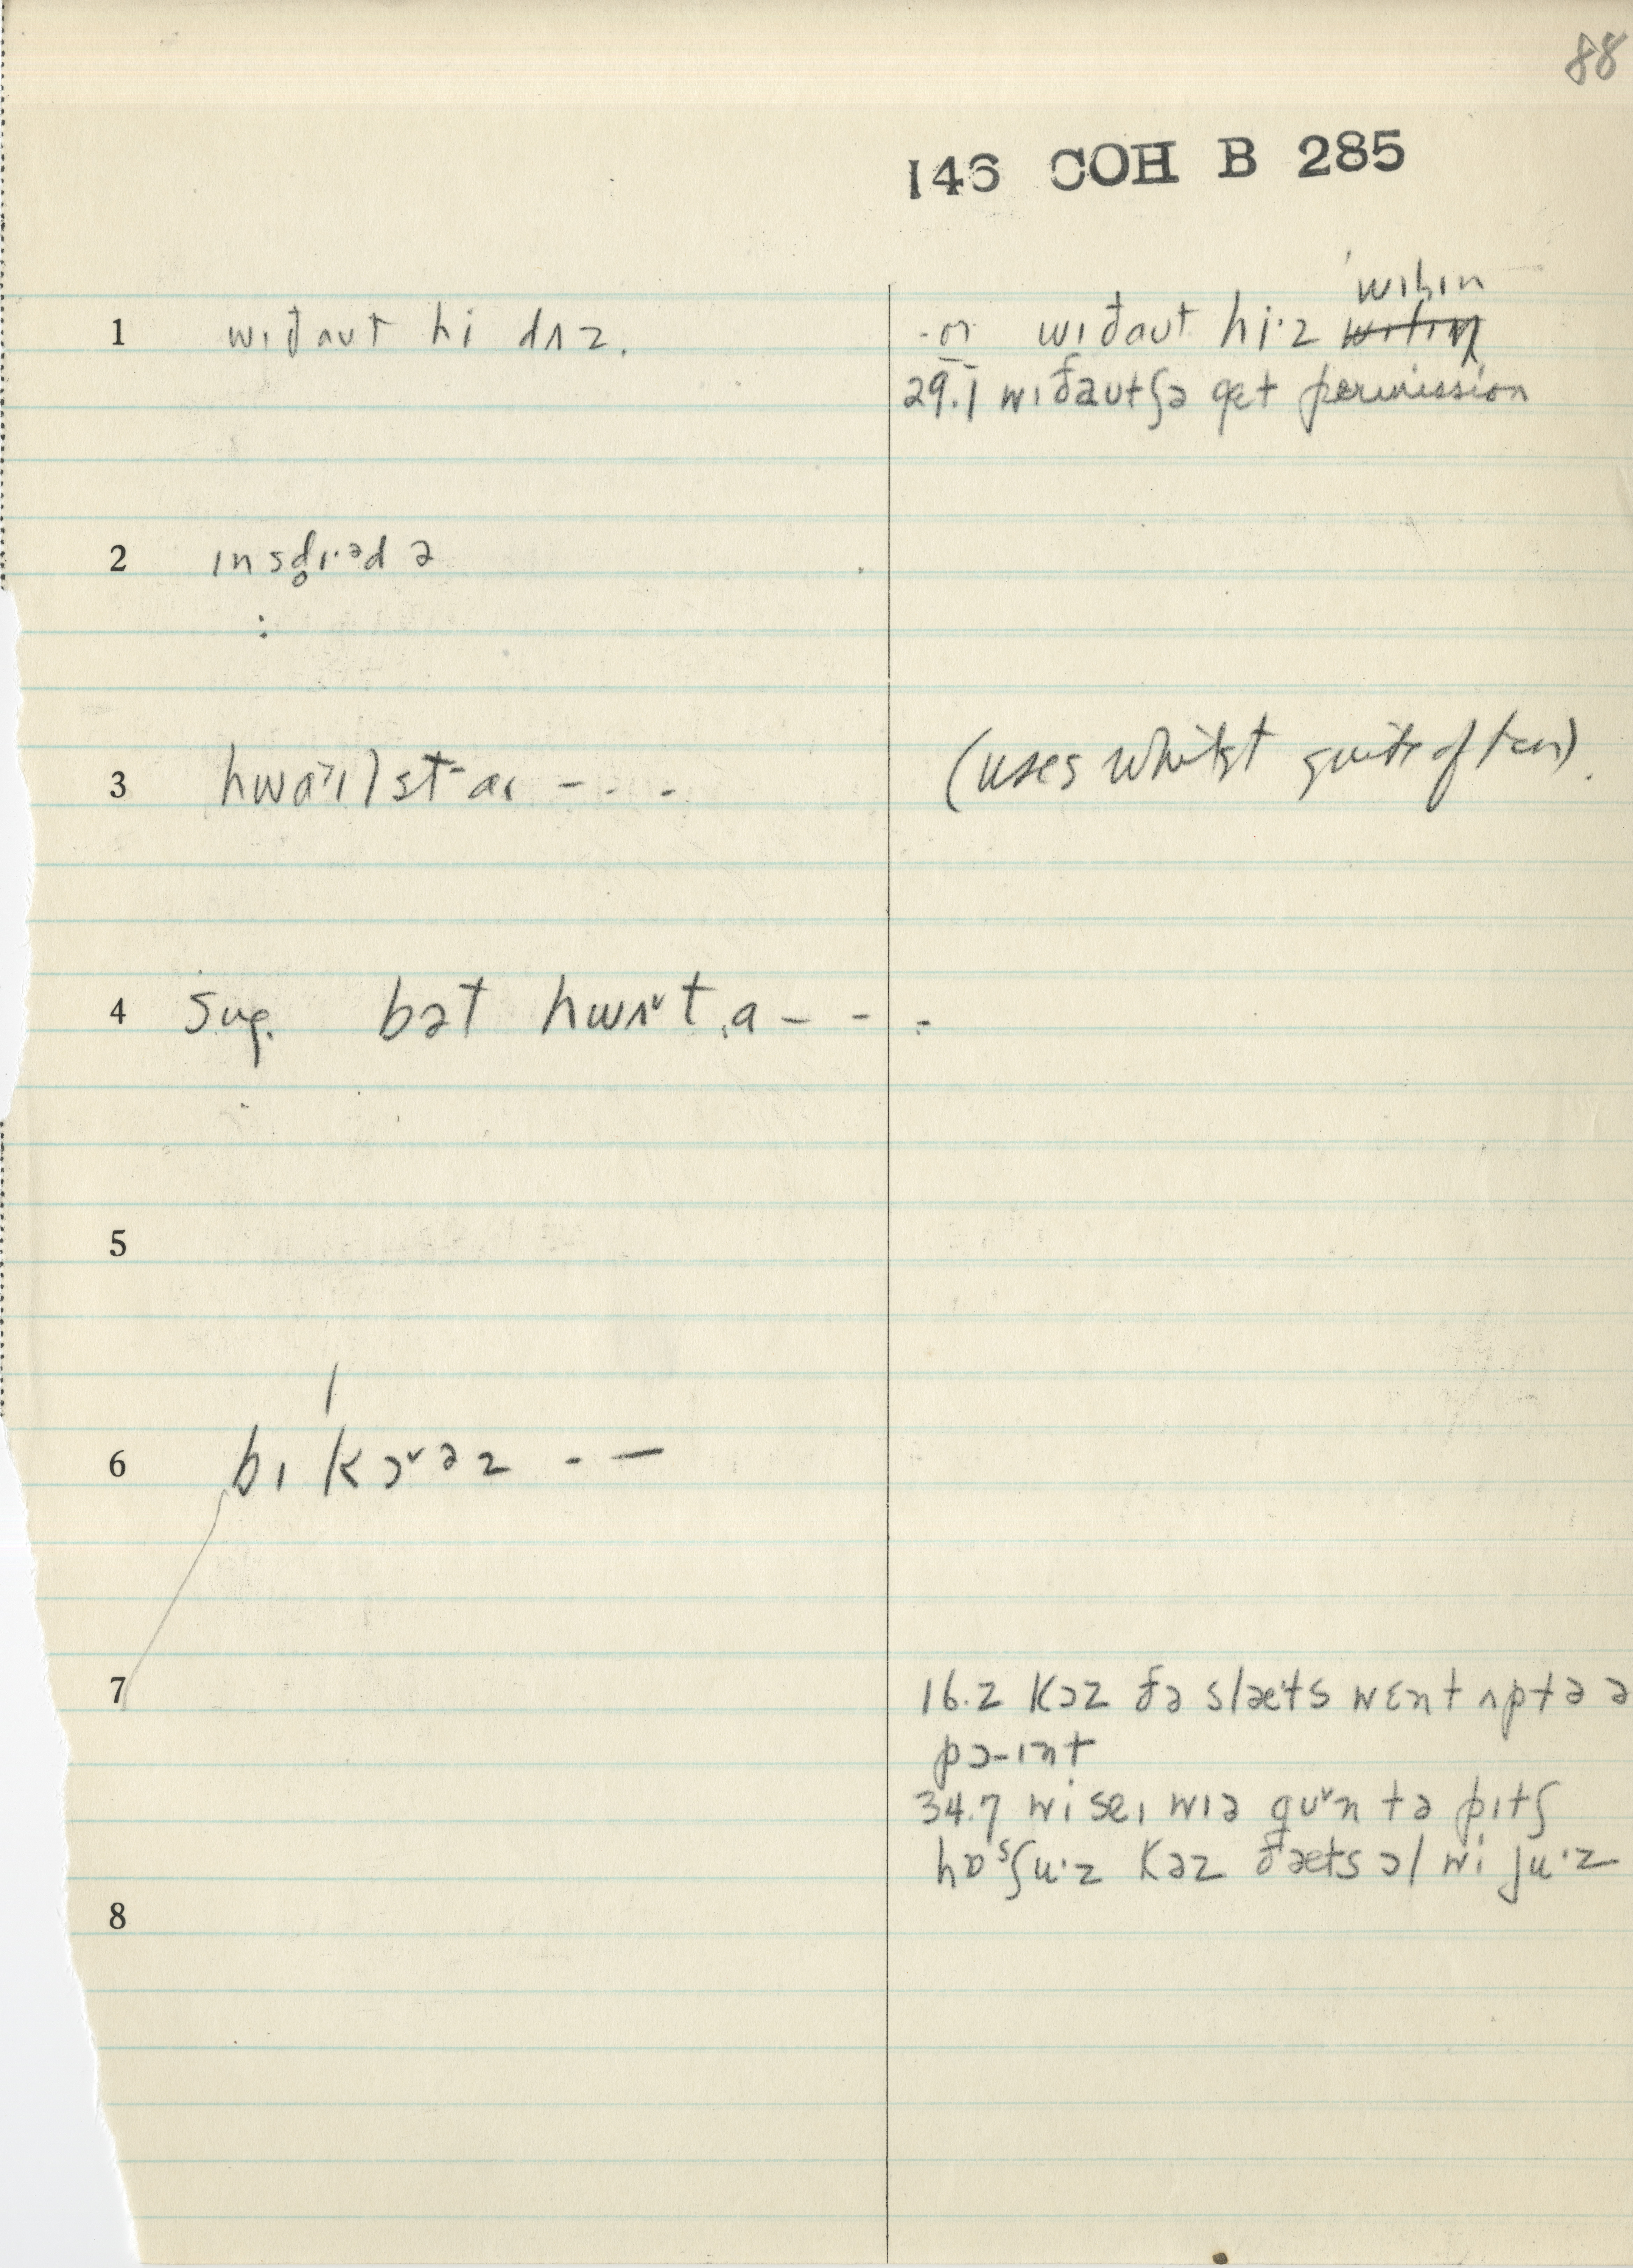 88
146 COH B 285
1 wɪđaut hi dʌz. -or wɪđaut hi·z wilin
29.1 wɪđəut ʃə get permission
2 ɪnsd̥ɪ·əd ə
:
3 (uses whilst quite often).
4 Sug. bət hwʌ˅t a - - -
5
6 bɪ'kɔ˅əz - -
7 16.2 kɔz đə slæts wɛnt ʌp tə ə
pɔ-ɪnt
34.7 wi seɪ wɪə gu˅n tə pɪtʃ
hɒˢʃu·z kəz đæts ɔl wi ju·z
8